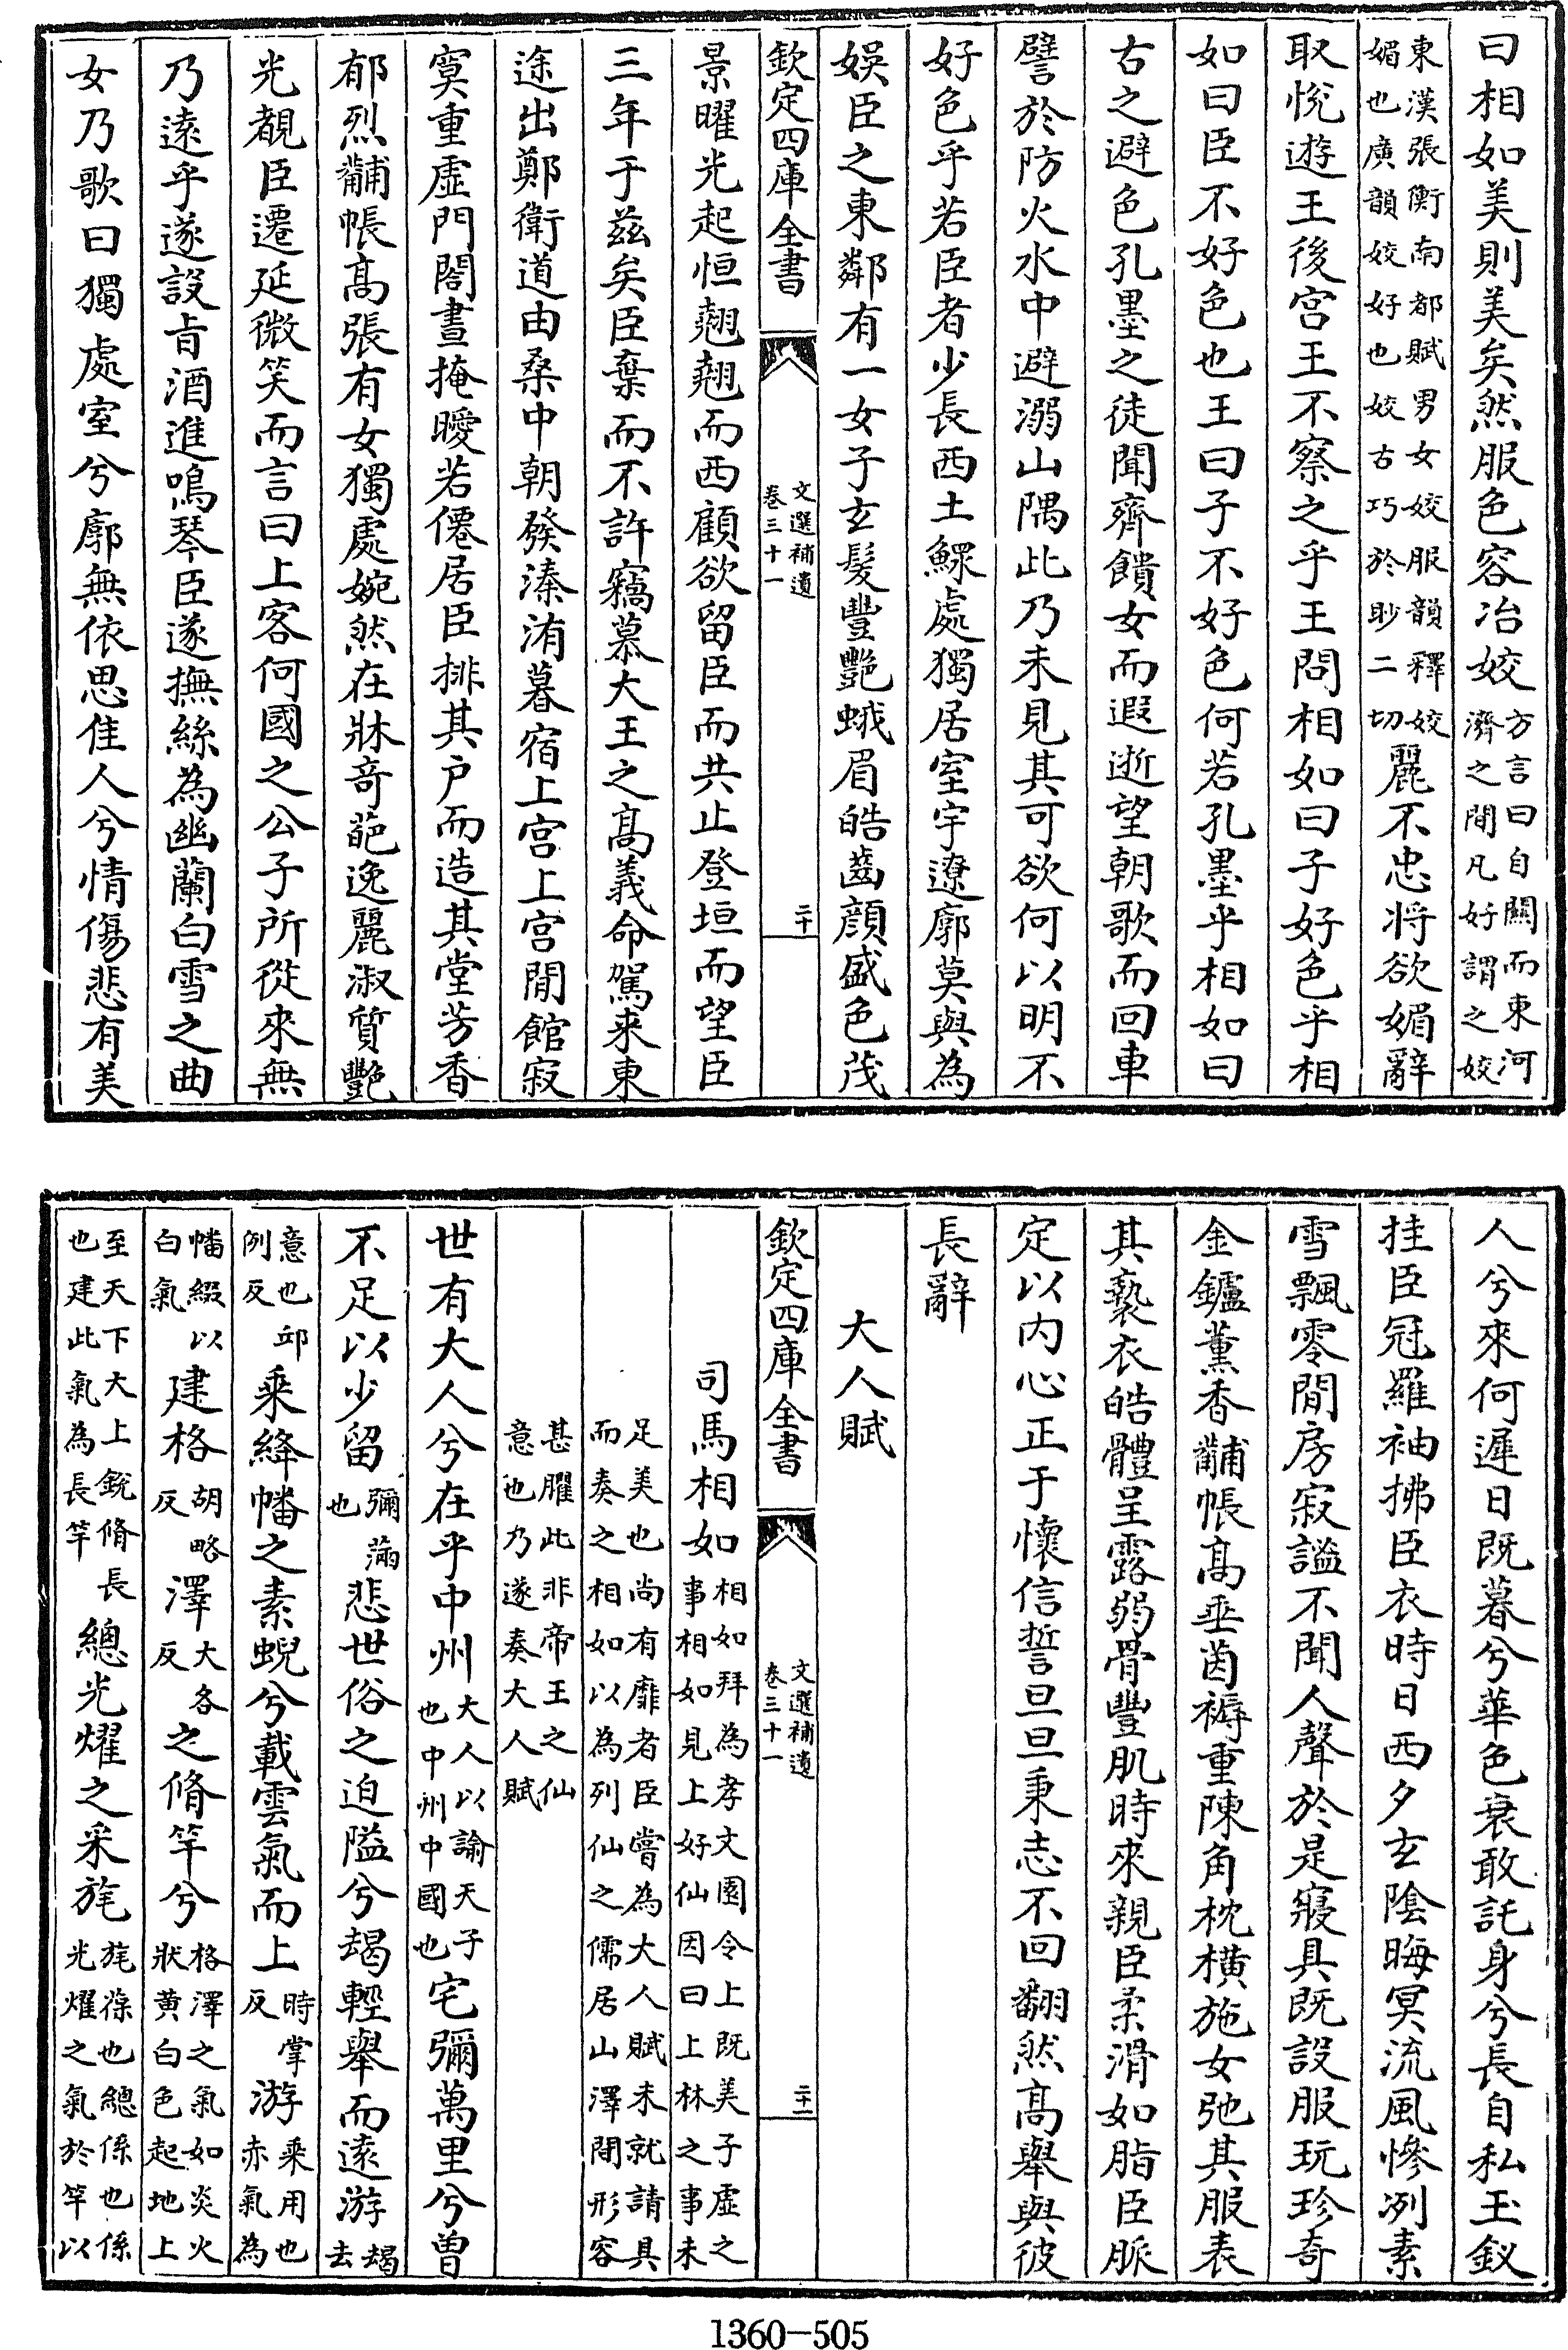 曰相如美則美矣然服色容冶姣方言曰自關而東河濟之間凡好謂之姣
東漢張衡南都賦男女姣服韻釋姣媚也廣韻姣好也姣古巧於眇二切麗不忠將欲媚辭
取悅遊王後宮王不察之乎王問相如曰子好色乎相
如曰臣不好色也王曰子不好色何若孔墨乎相如曰
古之避色孔墨之徒聞齊饋女而遐逝望朝歌而回車
譬於防火水中避溺山隅此乃未見其可欲何以明不
好色乎若臣者少長西土鰥處獨居室宇遼廓莫與為
娛臣之東鄰有一女子玄髮豐艷蛾眉皓齒顔盛色茂
欽定四庫全書 文選補遺卷三十一 二十
景曜光起恒翹翹而西顧欲留臣而共止登垣而望臣
三年于茲矣臣棄而不許竊慕大王之高義命駕来東
途出鄭衛道由桑中朝發溱洧暮宿上宮上宮閒館寂
寞重虛門閤晝掩曖若僊居臣排其户而造其堂芳香
郁烈黼帳高張有女獨處婉然在牀竒葩逸麗淑質艷
光覩臣遷延微笑而言曰上客何國之公子所從來無
乃遠乎遂設旨酒進鳴琴臣遂撫絲為幽蘭白雪之曲
女乃歌曰獨處室兮廓無依思佳人兮情傷悲有美
人兮來何遲日既暮兮華色衰敢託身兮長自私玉釵
挂臣冠羅袖拂臣衣時日西夕玄陰晦冥流風慘冽素
雪飄零閒房寂謐不聞人聲於是寢具既設服玩珍奇
金鑪薰香黼帳高垂茵褥重陳角枕橫施女弛其服表
其褻衣皓體呈露弱骨豐肌時來親臣柔滑如脂臣脈
定以内心正于懷信誓旦旦秉志不回翻然高舉與彼
長辭
大人賦
欽定四庫全書 文選補遺卷三十一 二十一
司馬相如相如拜為孝文園令上既美子虛之事相如見上好仙因曰上林之事未
足美也尚有靡者臣嘗為大人賦未就請具而奏之相如以為列仙之儒居山澤間形容
甚臞此非帝王之仙意也乃遂奏大人賦
世有大人兮在乎中州大人以諭天子也中州中國也宅彌萬里兮曾
不足以少留彌滿也悲世俗之迫隘兮朅輕舉而遠游朅去
意也邱例反乘絳幡之素蜺兮載雲氣而上時掌反游乘用也赤氣為
幡綴以白氣建格胡略反澤大各反之脩竿兮格澤之氣如炎火狀黄白色起地上
至天下大上銳脩長也建此氣為長竿總光燿之采旄旄葆也總係也係光燿之氣於竿以
1360-505